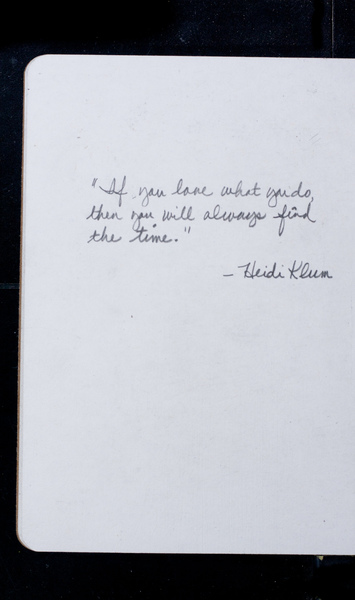 "If you love what you do,
then you will always find
the time."
- Heidi Klum